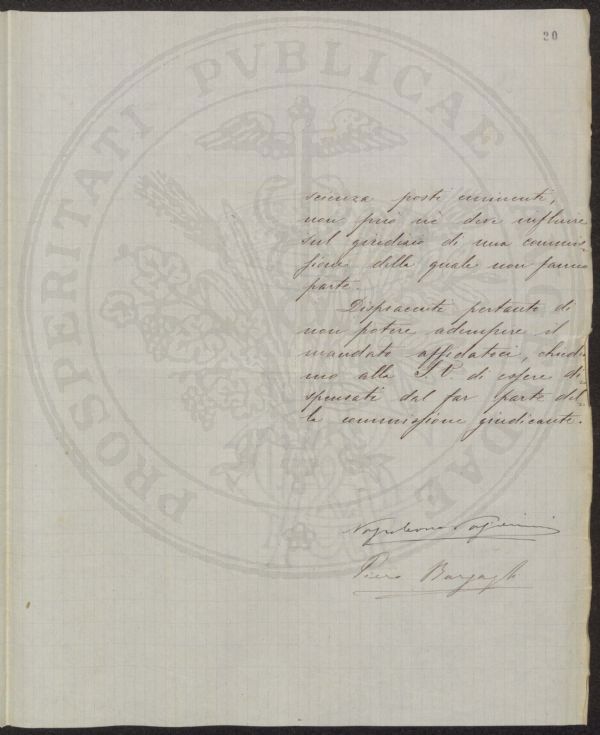 20
PROSPERITATI PVBLICAE
scienza posti eminenti,
non può nè deve influire
sul giudizio di una commis-
sione della quale non fanno
parte.
Dispiacenti pertanto di
non potere adempire il
mandato affidatoci, chiedia-
mo alla S. V. di essere di-
spensati dal far parte del-
la commissione giudicante.
Napoleone
Piero Bargagli